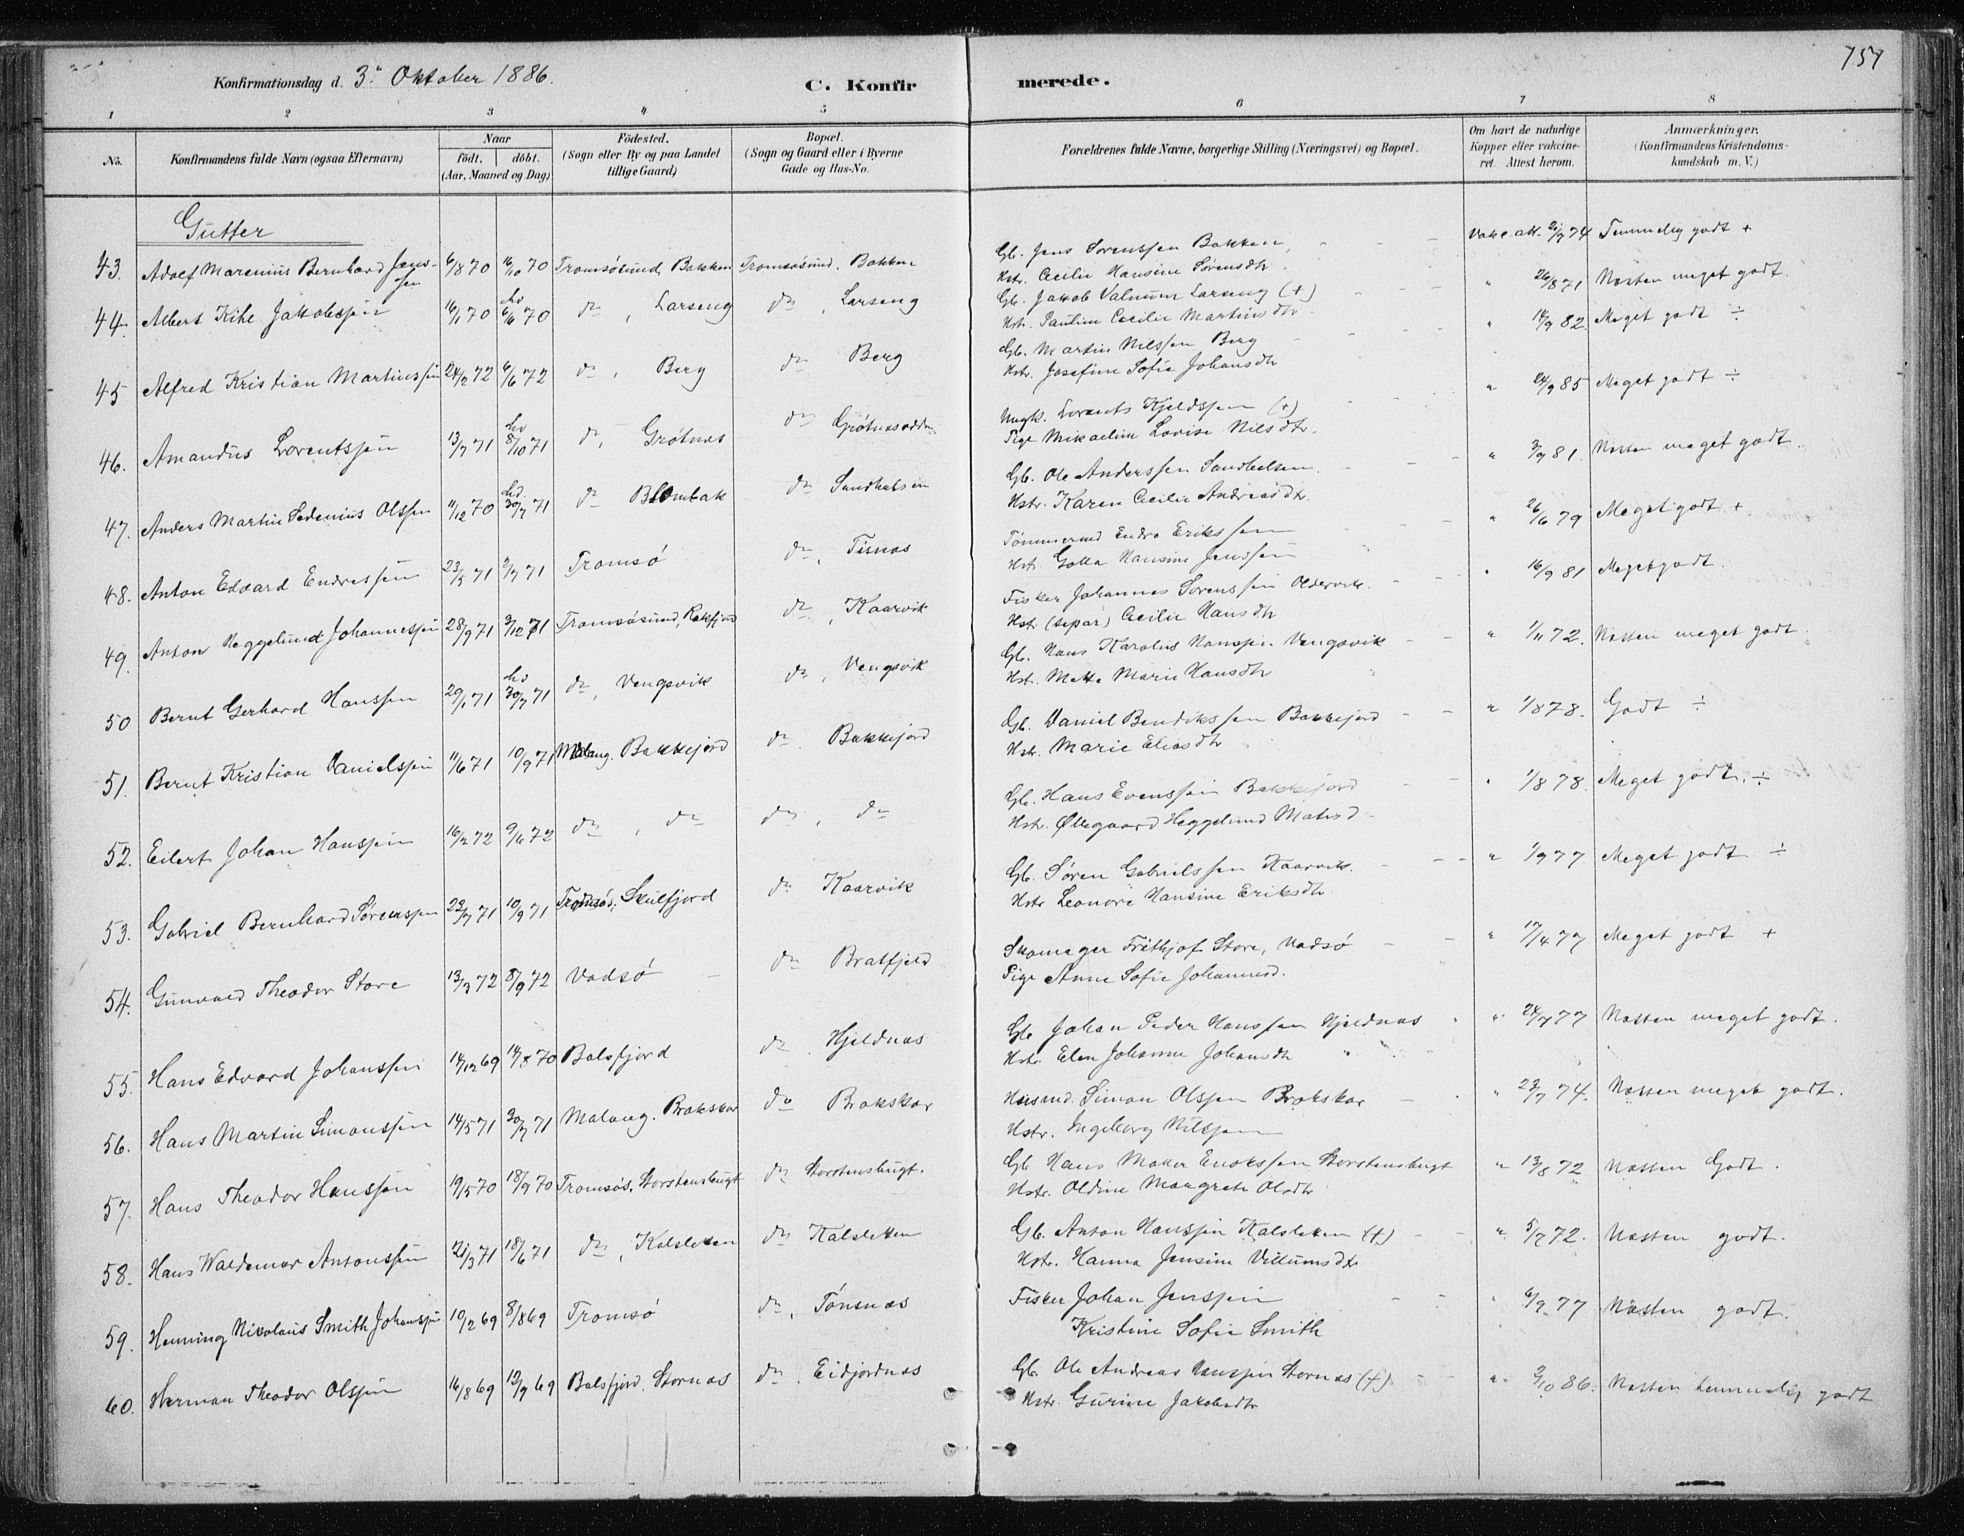 757
Konfirmationsdag d. 3. Oktober 1886.
C. Konfirmerede.
1 2 3 4 5 6 7 8
No. Konfirmandens fulde Navn (ogsaa Efternavn) Naar födt. döbt. (Aar, Maaned og Dag) Födested. (Sogn eller By og paa Landet tillige Gaard) Bopæl. (Sogn og Gaard eller i Byerne Gade og Hus-No. Forældrenes fulde Navne, borgerlige Stilling (Næringsvei) og Bopæl. Om havt de naturlige Kopper eller vakcineret. Attest herom. Anmærkninger. (Konfirmandens Kristendomskundskab m. V.)
Gutter
43. Adolf Marenius Bernhard Jenssen 6/8 70 16/10 70 Tromsøsund, Bakken Tromsøsund, Bakken Gb. Jens Sørenssen Bakken, Hstr. Cecilie Hansine Sørensdtr Vakc. att. 74 Temmelig godt +
44. Albert Kihl Jakobssen 16/1 70 hd 6/6 70 do, Larseng do, Larseng Gb. Jakob Larseng (+) Hstr. Pauline Cecilie Martinsdtr " 26/8 71 Næsten meget godt.
45 Alfred Kristian Martinssen 24/2 72 6/6 72 do, Berg do Berg Gb. Martin Nilssen Berg Hstr. Josefine Sofie Johansdtr " 14/9 82. Meget godt ÷
46. Amandus Lorentssen 13/7 71 hd 8/10 71 do, Grøtnæs do Ungk. Lorents Kjeldssen (+) Pige Mikaeline Lovise Nilsdtr. " 24/9 85 Meget godt ÷
47. Anders Martin Sedenius Olssen 11/12 70 hd. 30/7 71 do Blombak do Gb. Ole Anderssen Hstr. Karen Cecilie Andreasdtr. " 3/9 81. Næsten meget godt.
48. Anton Edvard Endressen 23/5 71 2/7 71 Tromsø do, Tisnæs Tømmermd Endre Erikssen Hstr. Golla Hansine Jenssen " 26/6 79 Meget godt +
49. Anton Heggelund Johannessen 28/9 71 3/12 71 Tromsøsund, do, Kaarvik Fisker Johannes Sørenssen Oldervik. Hstr. (separ) Cecilie Hansdtr " 16/9 81 Meget godt.
50 Bernt Gerhard Hanssen 29/1 71 hd 30/7 71 do, Vengsvik do, Vengsvik Gb. Hans Karolius Hanssen Vengsvik Hst. Mette Marie Hansdtr " 1/11 72. Næsten meget godt.
51. Bernt Kristian Danielssen 11/6 71 10/9 71 Malang. Bakkejord do. Bakkejord Gb. Daniel Bendikssen Bakkejord Hstr. Marie Eliasdtr " 1/8 78. Godt ÷
52. Eilert Johan Hanssen 16/2 72 9/6 72 do, do do, do Gb. Hans Evenssen Bakkejord Hstr. Øllegaard Heggelund Matisd. " 1/8 78. Meget godt. ÷
53. Gabriel Bernhard Sørenssen 23/7 71 10/9 71 Tromsøs; Skulfjord do Kaarvik Gb. Søren Gabrielssen Kaarvik. Hstr Leonore Hansine Eriksdtr. " 1/9 77 Meget godt ÷
54. Gunvald Theodor Store 13/3 72 8/9 72 Vadsø do Bratfjeld Skomager Frithjof Store, Vadsø Pige Anne Sofie Johannesd. " 17/4 77 Meget godt +
55. Hans Edvard Johanssen 14/12 69 14/8 70 Balsfjord do. Hjeldnæs Gb. Johan Peder Hanssen Hjeldnæs Hstr. Elen Johanna Johansdtr " 24/7 77 Næsten meget godt.
56. Hans Martin Simonssen 14/5 71 30/7 71 Malang. Brokskar do Brokskar Husmd. Simon Olssen Brokskar Hstr. Ingeborg Nilssen " 23/7 74. Næsten meget godt.
57. Hans Theodor Hanssen 19/5 70 18/9 70 Tromsøs. Storstensbugt do Storstensbugt. Gb Hans Enokssen Storstensbugt Hstr. Oldine Margrete Olsdtr. " 13/8 72 Næsten Godt.
58. Hans Waldemar Antonssen 21/3 71 18/6 71 do, Kalsletten do Kalsletten Gb. Anton Hanssen Kalsletten (+) Hstr. Hanna Jensine Villumsdtr " 5/7 72. Næsten godt.
59. Henning Nikolaus Smith Johanssen 10/2 69 8/8 69 Tromsø do. Tønsnæs Fisker Johan Jenssen Kristine Sofie Smith " 6/9 77 Næsten godt.
60. Herman Theodor Olssen 16/8 69 12/9 69 Balsfjord. Stornæs do. Eidjordnæs Gb. Ole Andreas Hanssen Stornæs (+) Hstr. Gurine Jakobsdtr " 2/10 86. Næsten temmelig godt